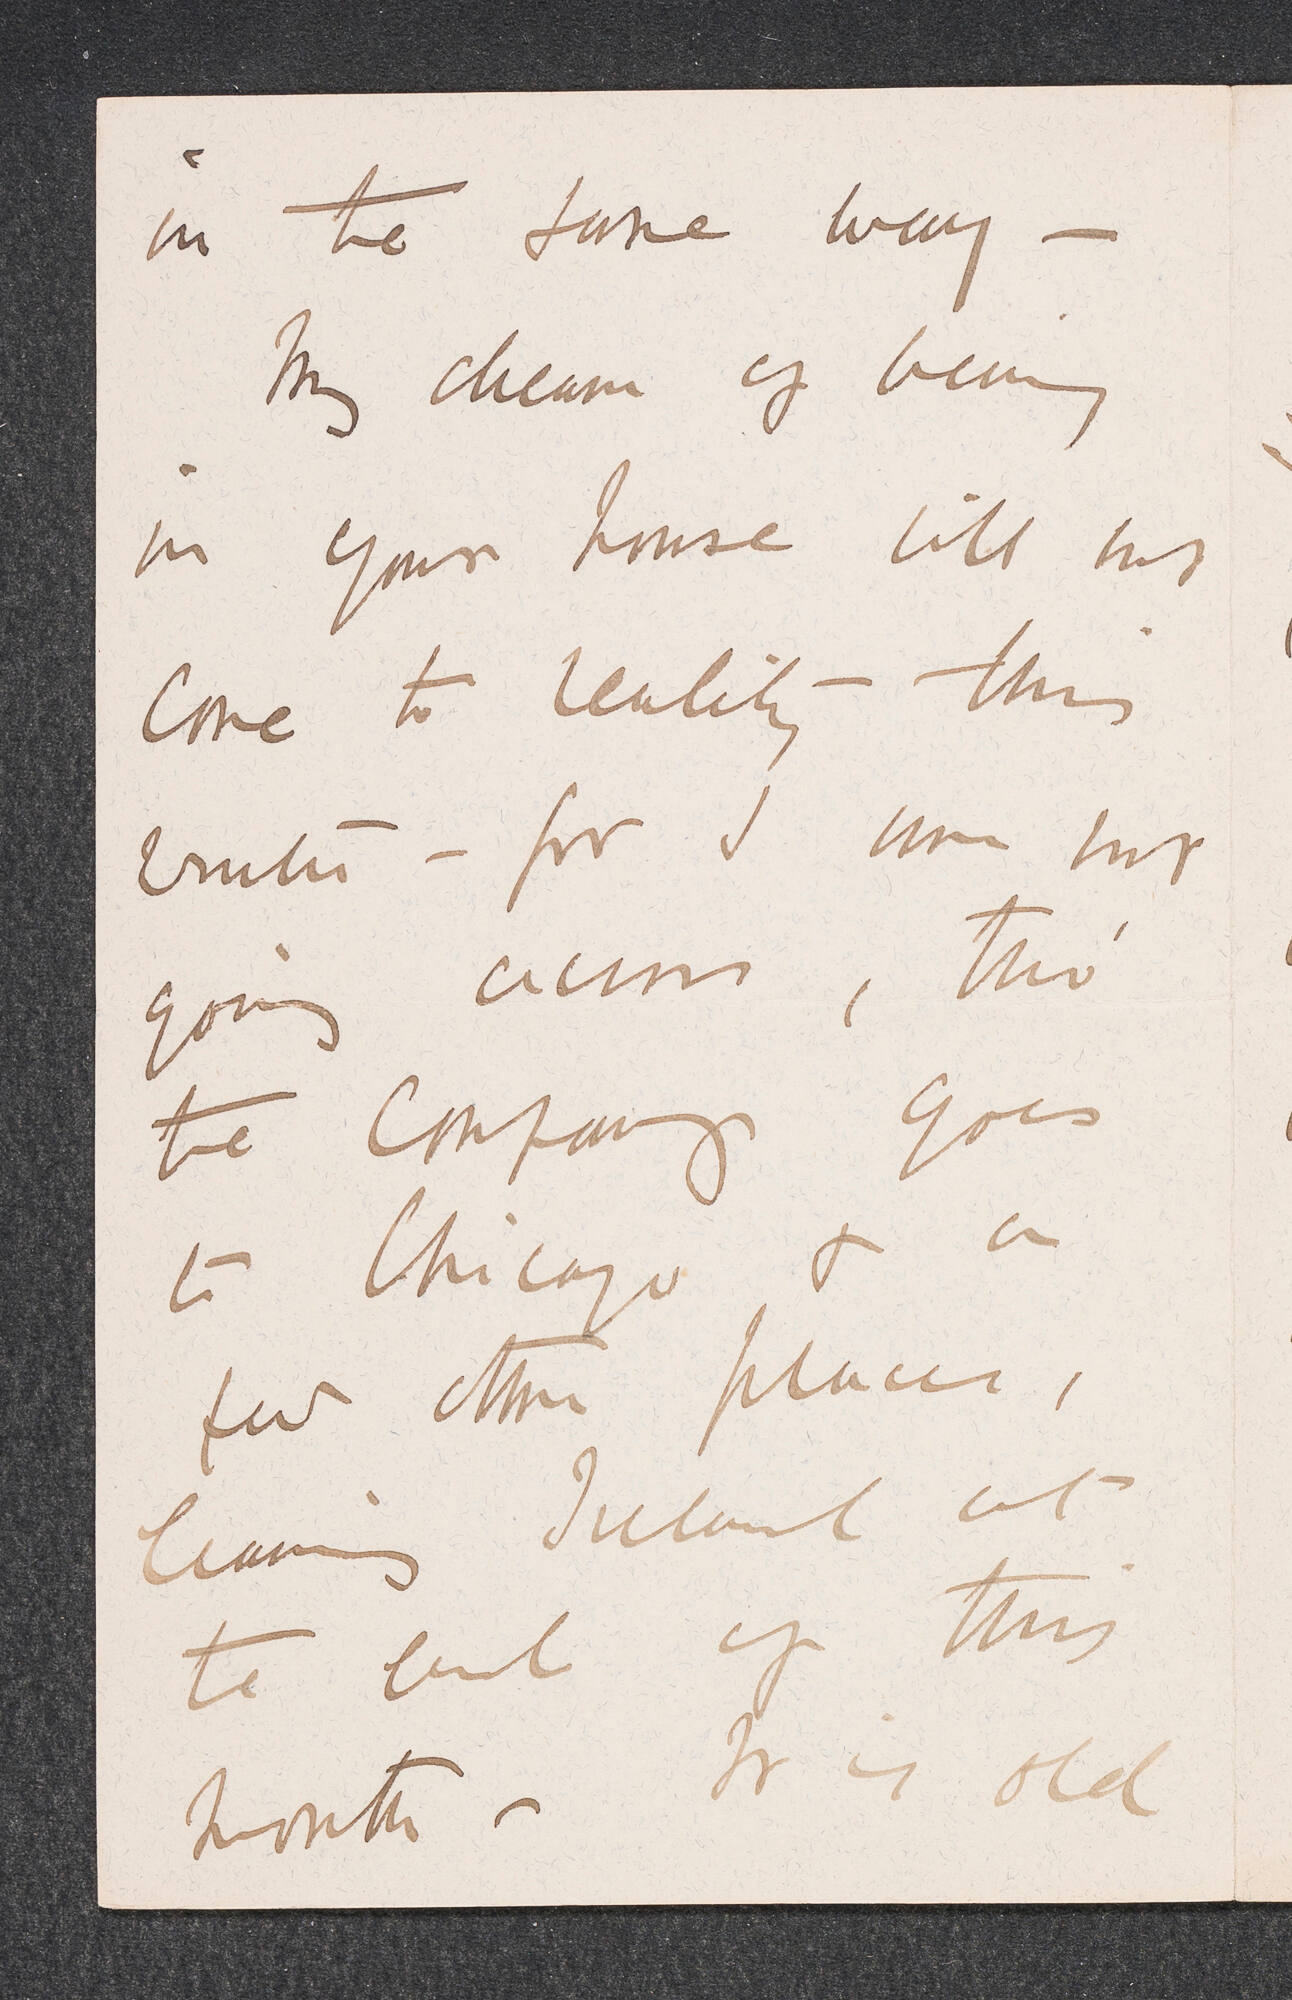 in the same way —
My dream of being
in your house will not
come to reality — this
winter — for I am not
going across, tho'
the Company goes
to Chicago & a
few other places,
leaving Ireland at
the end of this
month — It is old